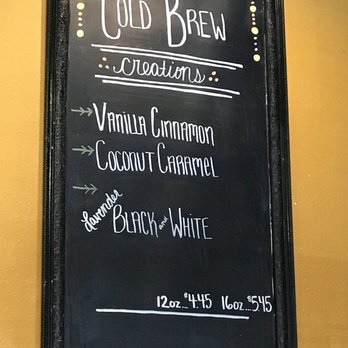 COLD BREW
creations
VANILLA CINNAMON
COCONUT CARAMEL
Lavender
BLACK and WHITE
12oz...$4.45 16oz...$5.45